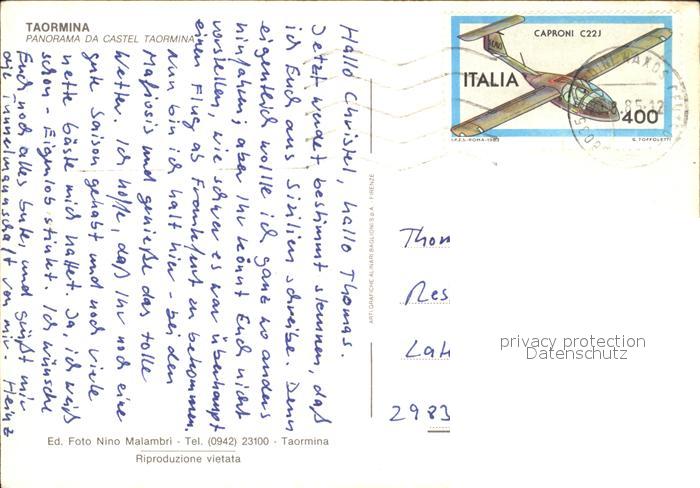 TAORMINA
PANORAMA DA CASTEL TAORMINA
Hallo Christel, hallo Thomas.
Jetzt werdet bestimmt staunen, daß
ich Euch aus Sizilien schreibe. Denn
eigentlich wollte ich ganz wo anders
hinfahren; aber Ihr könnt Euch nicht
vorstellen, wie schwer es war überhaupt
einen Flug ab Frankfurt zu bekommen.
Nun bin ich halt hier - bei den
Mafiosis und genieße das tolle
Wetter. Ich hoffe, daß Ihr noch eine
gute Saison gehabt und noch viele
nette Gäste mich hattet. Ja, ich weiß
schon - Eigenlob stinkt. Ich wünsche
Euch noch alles Gute, und grüßt mir
die von mir. Heinz
Ed. Foto Nino Malambrì - Tel. (0942) 23100 - Taormina
Riproduzione vietata
ARTI GRAFICHE ALINARI BAGLIONI S.p.A. - FIRENZE
CAPRONI C22J
ITALIA
400
I.P.Z.S.-ROMA-1983
G. TOFFOLETTI
Thom
Res
Lah
2983
privacy protection
Datenschutz